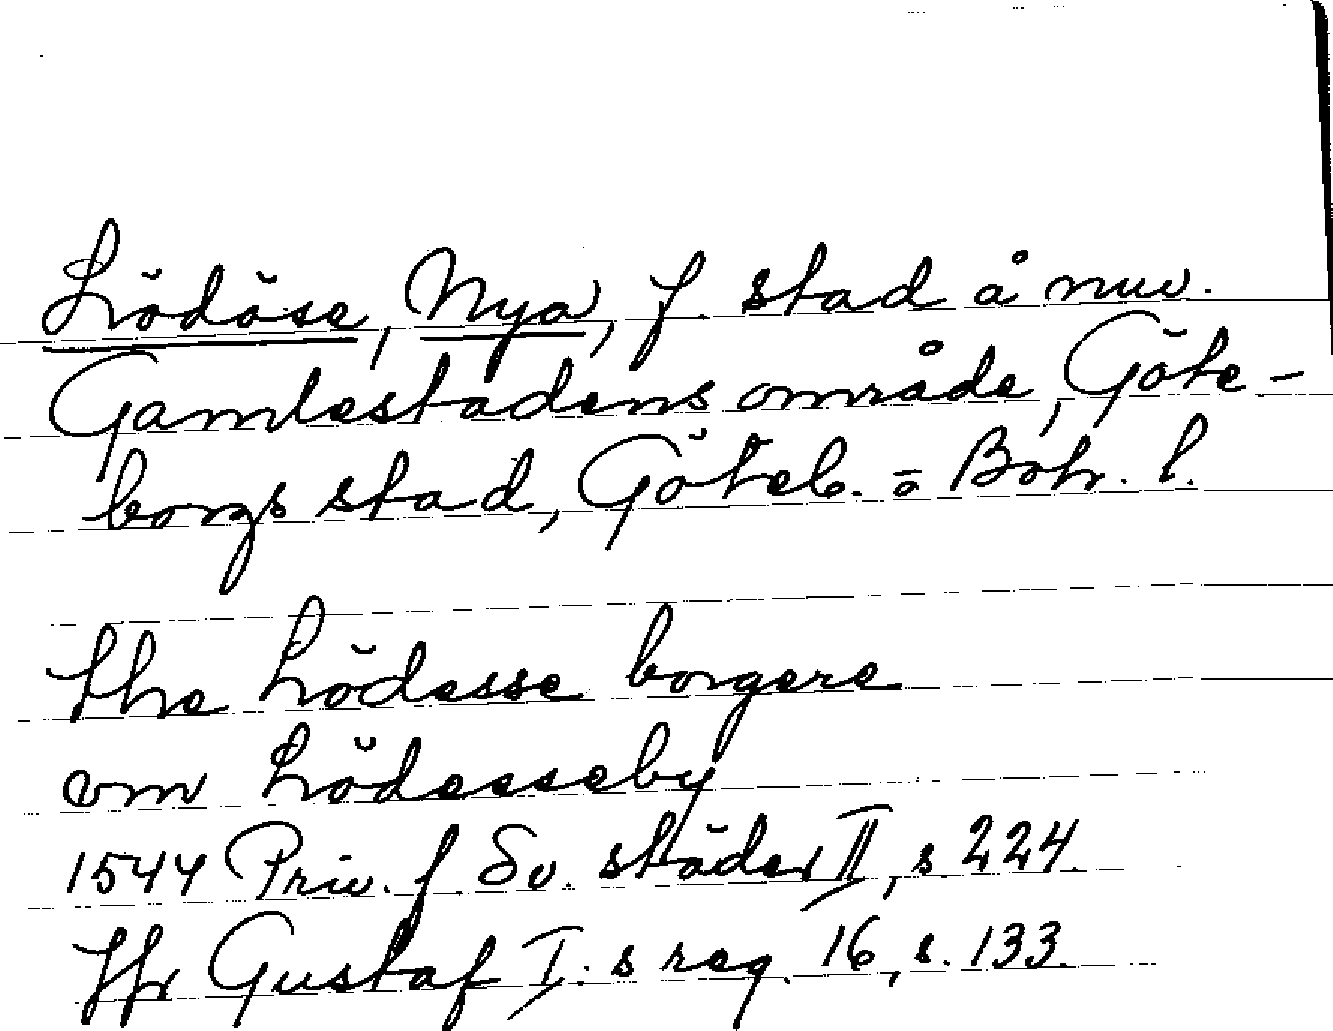 Lödöse, Nya, f. stad å nuv.
Gamlestadens område, Göte-
borgs stad, Göteb. o Boh. l.
the Lödesse borgere
vm Lödesseby
1544 Priv. f. Sv. städer II, s. 224.
Jfr Gustaf I:s reg. 16, s. 133.